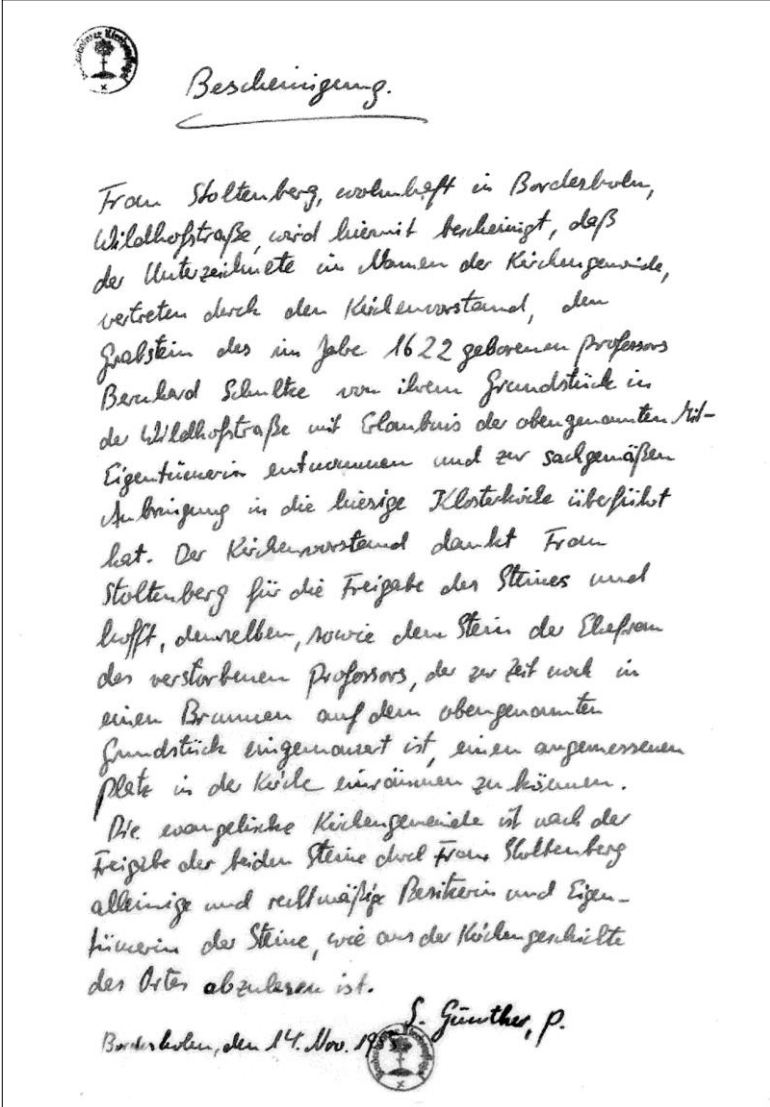 Bescheinigung.
Frau Stoltenberg, wohnhaft in Bordesholm,
Wildhofstraße, wird hiermit bescheinigt, daß
der Unterzeichnete im Namen der Kirchengemeinde,
vertreten durch den Kirchenvorstand, den
Grabstein des im Jahre 1622 geborenen Professors
Bernhard Schultke von ihrem Grundstück in
der Wildhofstraße mit Erlaubnis der obengenannten Mit-
Eigentümerin entnommen und zur sachgemäßen
Anbringung in die hiesige Klosterkirche überführt
hat. Der Kirchenvorstand dankt Frau
Stoltenberg für die Freigabe des Steines und
hofft, demselben, sowie dem Stein der Ehefrau
des verstorbenen Professors, der zur Zeit noch in
einen Brunnen auf dem obengenannten
Grundstück eingemauert ist, einen angemessenen
Platz in der Kirche einräumen zu können.
Die evangelische Kirchengemeinde ist nach der
Freigabe der beiden Steine durch Frau Stoltenberg
alleinige und rechtmäßige Besitzerin und Eigen-
tümerin der Steine, wie aus der Kirchengeschichte
des Ortes abzulesen ist.
G. Günther, P.
Bordesholm, den 14. Nov. 1955